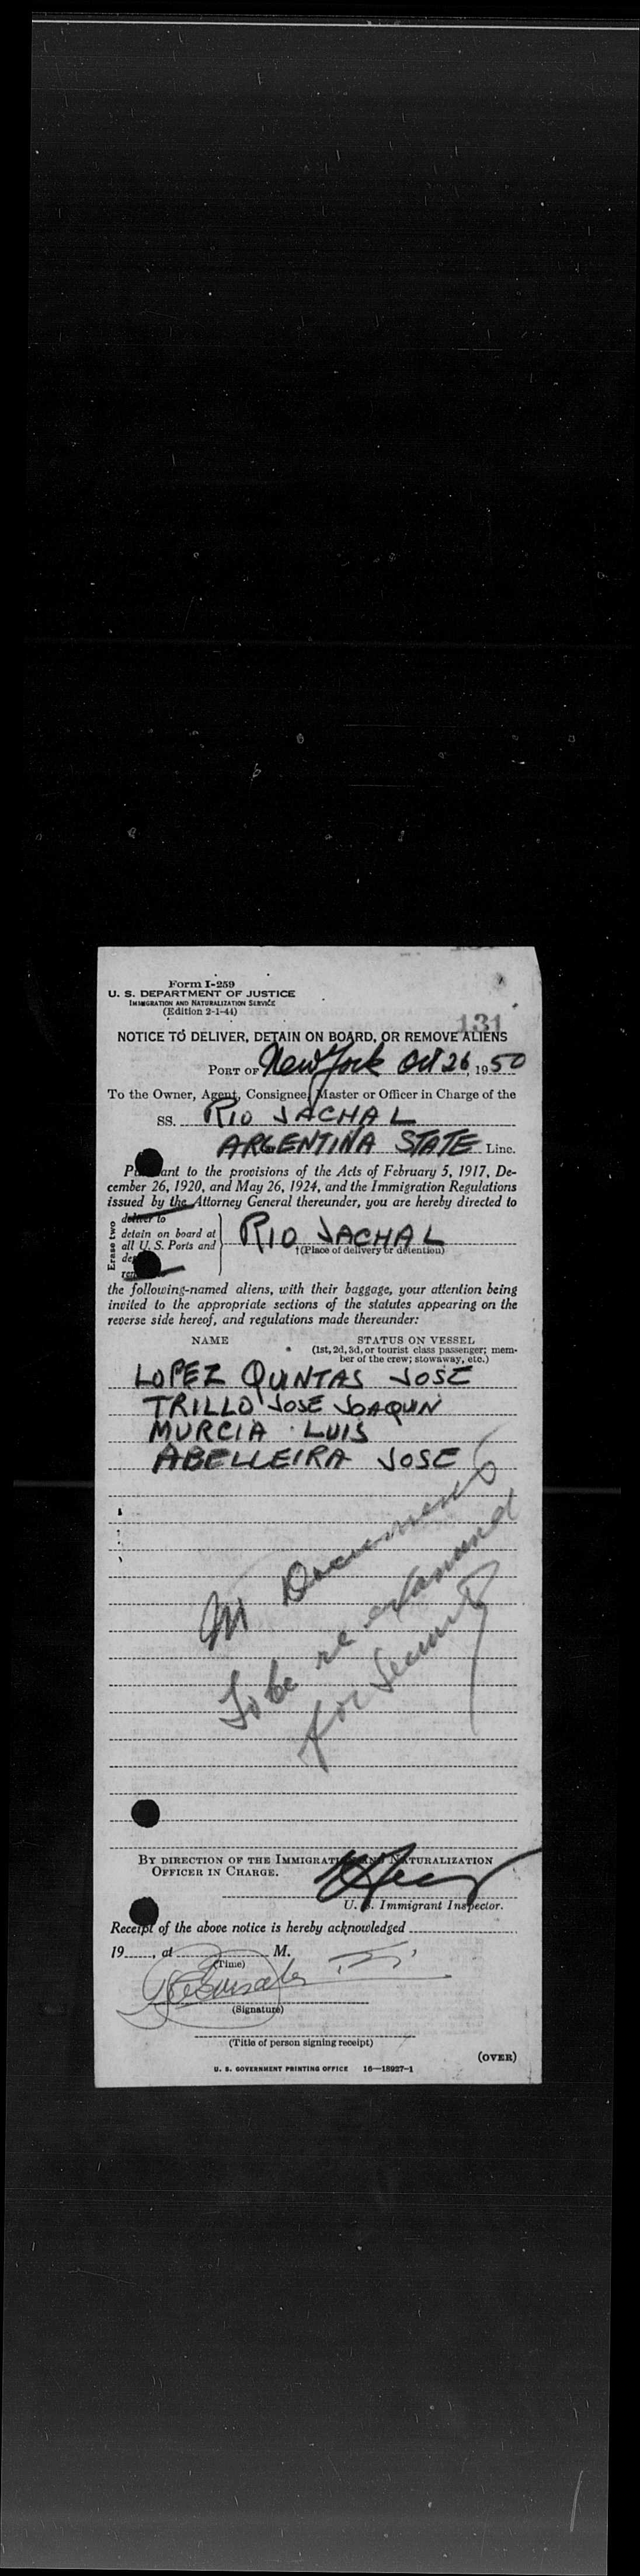 Form I-259
U. S. DEPARTMENT OF JUSTICE
IMMIGRATION AND NATURALIZATION SERVICE
(Edition 2-1-44)
131
NOTICE TO DELIVER, DETAIN ON BOARD, OR REMOVE ALIENS
PORT OF New York Oct 26, 1950
To the Owner, Agent, Consignee, Master or Officer in Charge of the
SS. RIO JACHAL
ARGENTINA STATE Line.
Pursuant to the provisions of the Acts of February 5, 1917, De-
cember 26, 1920, and May 26, 1924, and the Immigration Regulations
issued by the Attorney General thereunder, you are hereby directed to
Erase two
deliver to
detain on board at
all U. S. Ports and
RIO JACHAL
†(Place of delivery or detention)
the following-named aliens, with their baggage, your attention being
invited to the appropriate sections of the statutes appearing on the
reverse side hereof, and regulations made thereunder:
NAME STATUS ON VESSEL
(1st, 2d, 3d, or tourist class passenger; mem-
ber of the crew; stowaway, etc.)
LOPEZ QUINTAS JOSE
TRILLO JOSE JOAQUIN
MURCIA LUIS
ABELLEIRA JOSE
Documents
To be re examined
for Security
BY DIRECTION OF THE IMMIGRATION AND NATURALIZATION
OFFICER IN CHARGE.
U. S. Immigrant Inspector.
Receipt of the above notice is hereby acknowledged
19 , at M.
(Time)
(Signature)
(Title of person signing receipt)
(OVER)
U. S. GOVERNMENT PRINTING OFFICE 16—18927-1